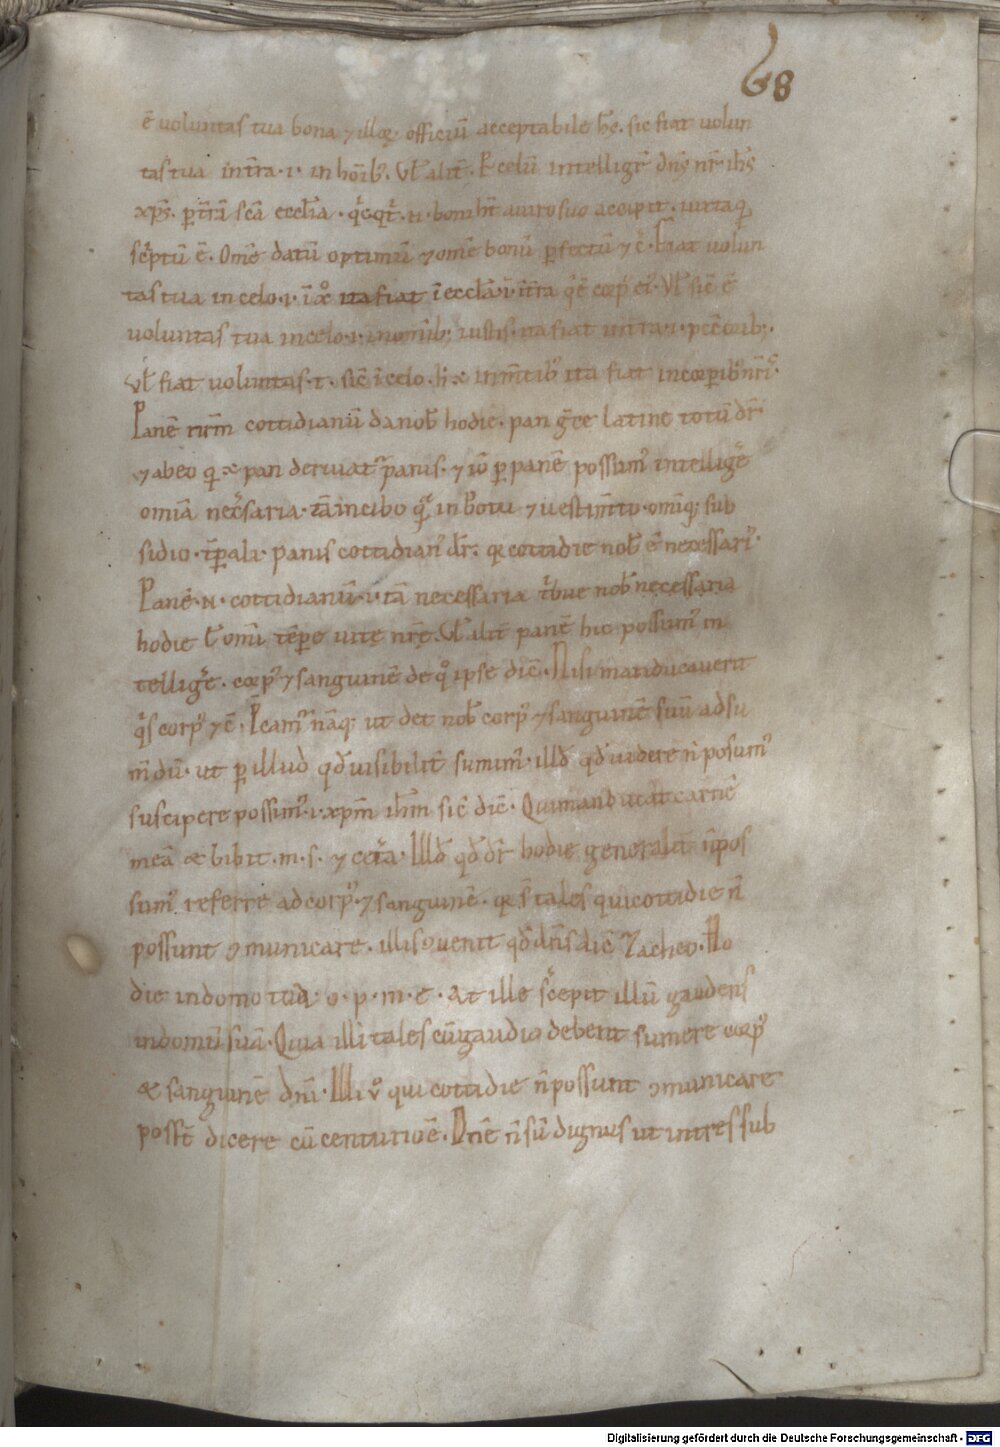 68
ē voluntas tua bona ⁊ illoꝝ officiū acceptabile hc̄. sic fiat volun
tas tua in t̄ra .i. in hoīb;. Vl̄ alit̄. P̱ celū intelligit̄ dn̄s nr̄ ih̄s
xp̄s. p̱ t̄rā scā ecclīa. accipit. iuxta
sc̄ptū ē. Om̄e datū optimū ⁊ om̄e bonū ꝑfectū ⁊ c̄. Fiat volun
tas tua in celo .i. ī xp̄o ita fiat ī eccla .i. ī t̄ra Vl̄ sic̄ ē
voluntas tua in celo .i. in iustis. ita fiat in t̄ra .i.
Vl̄ fiat voluntas .t. sic̄ ī celo. ita fiat in corꝑib; nr̄is.
Panē nr̄m cottidianū da nob̄ hodie. pan grēe latine totū dr̄.
⁊ abeo pan derivat̄ panis. ⁊ iō ꝑ panē possum᾽ intellige᷒
omīa nec̄saria. tā in cibo in potu ⁊ vestim̄to. omīq; sub
sidio. Panis cottidian᾽ dr̄. cottidie nob̄ ē necessari᾽.
Panē .n. cottidianū .i. tā necessaria t᷒bue nob̄ necessaria
hodie .i. omī tēꝑe vitę nrę̄. Vl̄ alit̄ panē hic possum᾽ in
tellige᷒. corp᾽ ⁊ sanguinē de q° ipse dic̄. Nisi manducaverit
q̄s corp᾽ ⁊ c̄. Pcam᾽ nāq; ut det nob̄ corp᾽ ⁊ sanguinē suū ad su
m̄dū. ut ꝑ illud qd̄ visibilit̄ sumim᾽. illd̄ qd̄ videre n̄ posum᾽
suscipere possim᾽ .i. xp̄m ih̄m sic̄ dic̄. Qui manducat carnē
meā & bibit .m. s. ⁊ cet̄a. Illd̄ qd̄ dr̄ hodie generalit̄ n̄ pos
sum᾽ referre ad corp᾽ ⁊ sanguinē. s̄ tales qui cottidie n̄
possunt ꝯmunicare. illis ꝯvenit qd̄ dn̄s dic̄ Zacheo. Ho
die in domo tua .o. p. m. e. At ille sc̄epit illū gaudens
in domū suā. Qvia illi tales cū gaudio debent sumere corp᾽
& sanguinē dn̄i. Illi v° qui cottidie n̄ possunt ꝯmunicare
posst̄ dicere cū centurioē. Dn̄e n̄ sū dignus ut intres sub
Digitalisierung gefördert durch die Deutsche Forschungsgemeinschaft - DFG